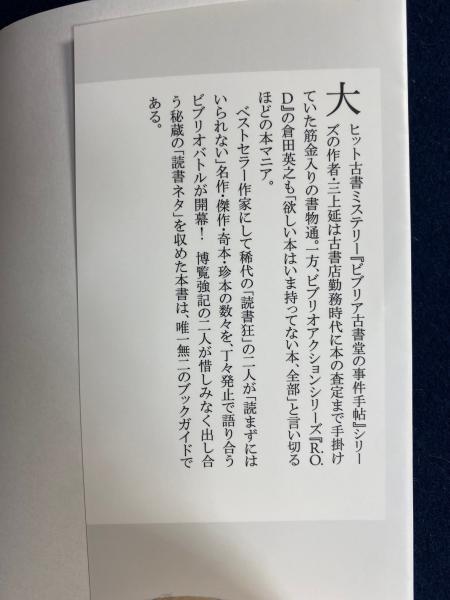 大ヒット古書ミステリー『ビブリア古書堂の事件手帖』シリー
ズの作者・三上延は古書店勤務時代に本の査定まで手掛け
ていた筋金入りの書物通。一方、ビブリオアクションシリーズ『R.O.
D』の倉田英之も「欲しい本はいま持ってない本、全部」と言い切る
ほどの本マニア。
ベストセラー作家にして稀代の「読書狂」の二人が「読まずには
いられない」名作・傑作・奇本・珍本の数々を、丁々発止で語り合う
ビブリオバトルが開幕！　博覧強記の二人が惜しみなく出し合
う秘蔵の「読書ネタ」を収めた本書は、唯一無二のブックガイドで
ある。